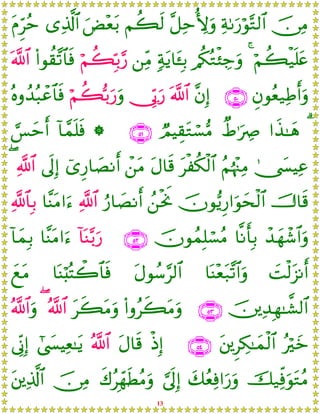 مِنَ ٱلتَّوْرَىٰةِ وَلِأُحِلَّ لَكُم بَعْضَ ٱلَّذِى حُرِّمَ
عَلَيْكُمْ ۚ وَجِئْتُكُم بِـَٔايَةٍ مِّن رَّبِّكُمْ فَٱتَّقُوا۟ ٱللَّهَ
وَأَطِيعُونِ ﴿٥٠﴾ إِنَّ ٱللَّهَ رَبِّى وَرَبُّكُمْ فَٱعْبُدُوهُ
ۗ هَٰذَا صِرَٰطٌ مُّسْتَقِيمٌ ﴿٥١﴾ ۞ فَلَمَّآ أَحَسَّ
عِيسَىٰ مِنْهُمُ ٱلْكُفْرَ قَالَ مَنْ أَنصَارِىٓ إِلَى ٱللَّهِ ۖ
قَالَ ٱلْحَوَارِيُّونَ نَحْنُ أَنصَارُ ٱللَّهِ ءَامَنَّا بِٱللَّهِ
وَٱشْهَدْ بِأَنَّا مُسْلِمُونَ ﴿٥٢﴾ رَبَّنَآ ءَامَنَّا بِمَآ
أَنزَلْتَ وَٱتَّبَعْنَا ٱلرَّسُولَ فَٱكْتُبْنَا مَعَ
ٱلشَّٰهِدِينَ ﴿٥٣﴾ وَمَكَرُوا۟ وَمَكَرَ ٱللَّهُ ۖ وَٱللَّهُ
خَيْرُ ٱلْمَٰكِرِينَ ﴿٥٤﴾ إِذْ قَالَ ٱللَّهُ يَٰعِيسَىٰٓ إِنِّى
مُتَوَفِّيكَ وَرَافِعُكَ إِلَىَّ وَمُطَهِّرُكَ مِنَ ٱلَّذِينَ
13